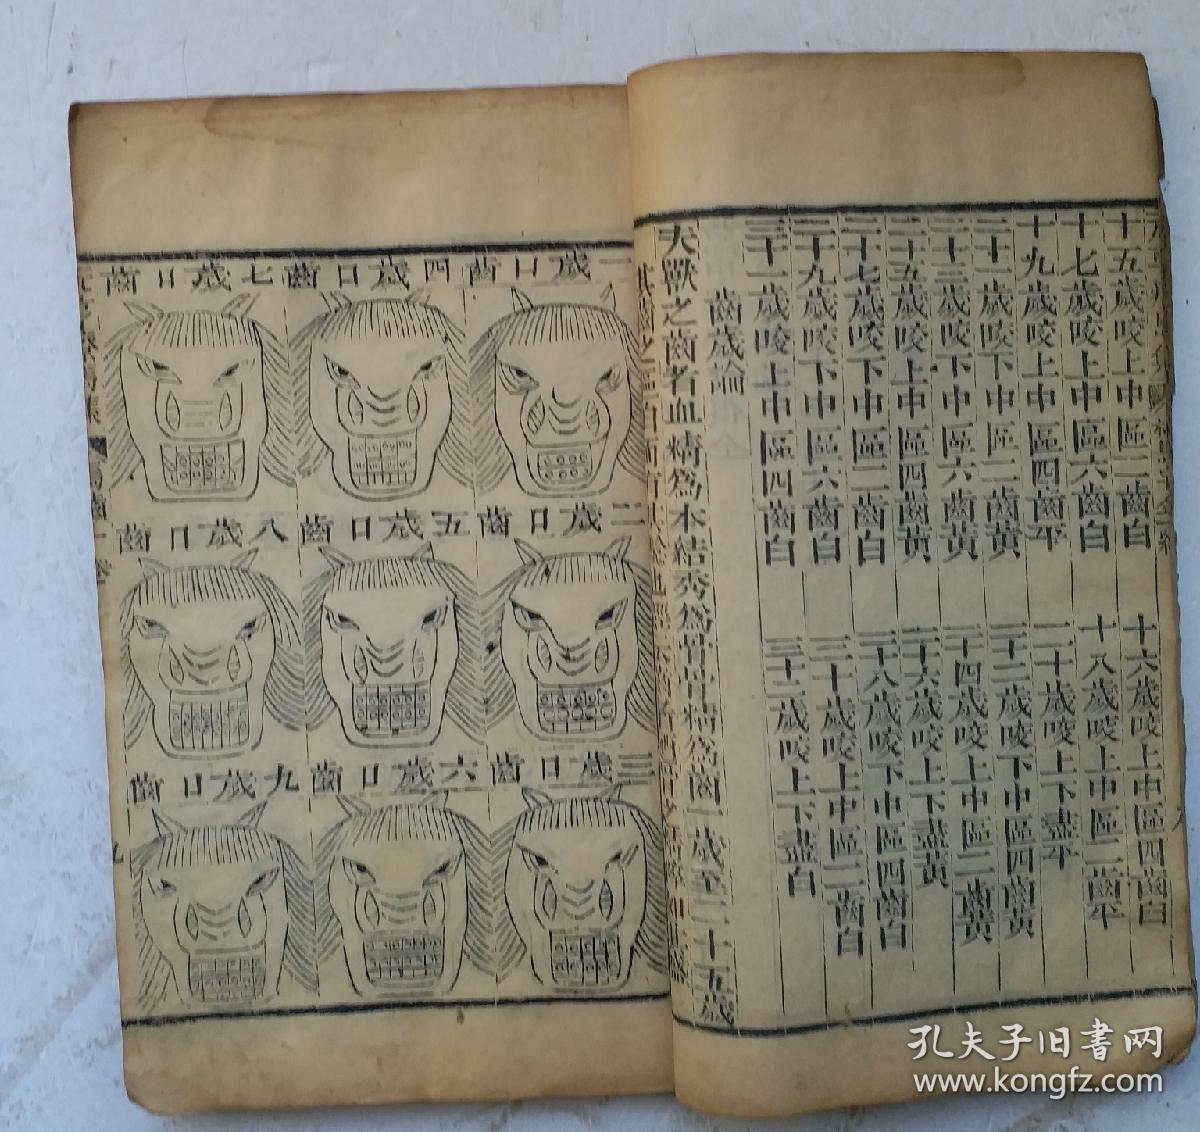 十五歲咬上中區二齒白
十六歲咬上中區四齒白
十七歲咬上中區六齒白
十八歲咬上中區二齒平
十九歲咬上中區四齒平
二十歲咬上下盡平
二十一歲咬下中區二齒黃
二十二歲咬下中區四齒黃
二十三歲咬下中區六齒黃
二十四歲咬上中區二齒黃
二十五歲咬上中區四齒黃
二十六歲咬上下盡黃
二十七歲咬下中區二齒白
二十八歲咬下中區四齒白
二十九歲咬下中區六齒白
三十歲咬上中區二齒白
三十一歲咬上中區四齒白
三十二歲咬上下盡白
齒歲論
夫獸之齒者血精為本結秀為骨骨精為齒一歲至三十五歲
一歲口齒
四歲口齒
七歲口齒
二歲口齒
五歲口齒
八歲口齒
三歲口齒
六歲口齒
九歲口齒
孔夫子旧书网
www.kongfz.com